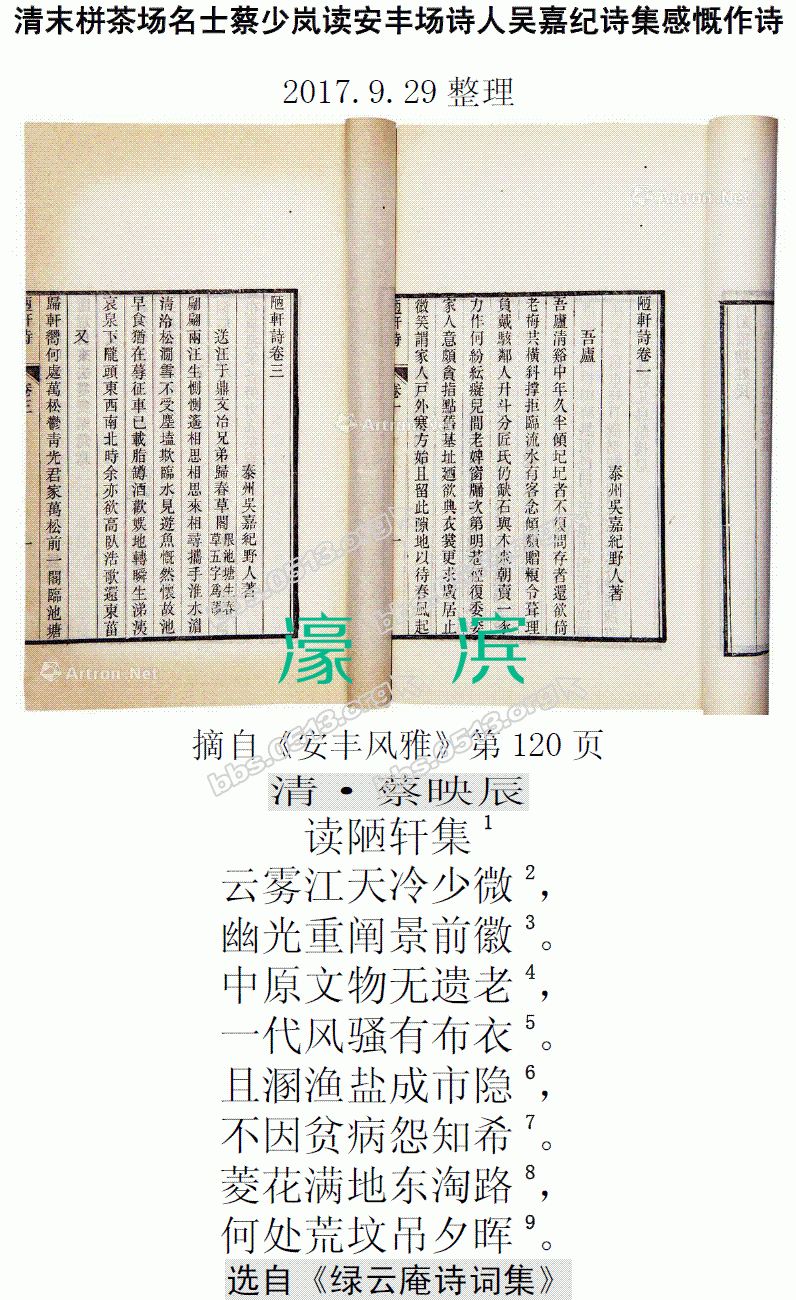 清末栟茶场名士蔡少岚读安丰场诗人吴嘉纪诗集感慨作诗
2017.9.29 整理
Artron.Net
陋軒詩卷一
泰州吳嘉紀野人著
吾廬
吾廬清谿中年久半傾圮圮者不須問存者還欲倚
老梅共橫斜撐拒臨流水有客念傾頹贈糗令葺理
負戴駭鄰人升斗分匠氏仍缺石與木來朝賣一豕
力作何紛紜凝兒間老婢窗牖次第明巷徑復委委
家人意頗貪指點舊基址廼欲典衣裳更求廣居止
微笑謂家人戸外寒方始且留此隙地以待春風起
陋軒詩
卷一
一
陋軒詩卷三
泰州吳嘉紀野人著
送汪于鼎文冶兄弟歸春草閣限池塘生春草五字為韻
翩翩兩汪生惻惻遙相思相思來相尋攜手淮水湄
清泠松澗雲不受塵壒欺臨水見遊魚慨然懷故池
早食猶在蓐征車已載脂罇酒歡娛地轉瞬生涕洟
哀泉下隴頭東西南北時余亦欲高臥浩歌還東菑
又
歸軒嚮何處萬松鬱青光君家萬松前一閣臨池塘
陋軒詩
卷三
一
Artron.Net
Artron.Net
濠 滨
bbs.0513.org
bbs.0513.org
摘自《安丰风雅》第 120 页
清·蔡映辰
读陋轩集1
云雾江天冷少微2，
幽光重阐景前徽3。
中原文物无遗老4，
一代风骚有布衣5。
且溷渔盐成市隐6，
不因贫病怨知希7。
菱花满地东淘路8，
何处荒坟吊夕晖9。
选自《绿云庵诗词集》